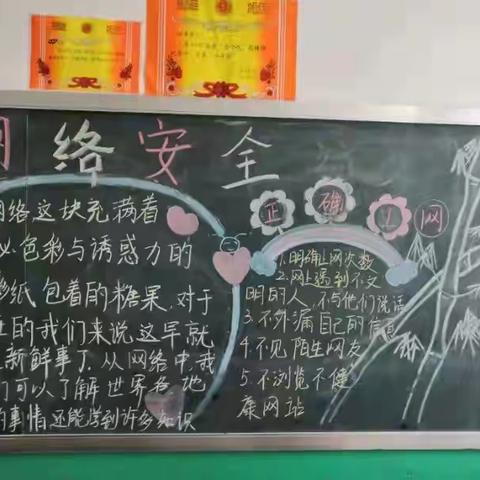 网络安全
网络这块充满着
色彩与诱惑力的
彩纸包着的糖果.对于
的我们来说这早就
新鲜事了.从网络中,我
们可以了解世界各地
的事情还能学到许多知识
正确上网
1.明确上网次数
2.网上遇到不文
明的人,不与他们说话
3.不外漏自己的信息
4.不见陌生网友
5.不浏览不健
康网站